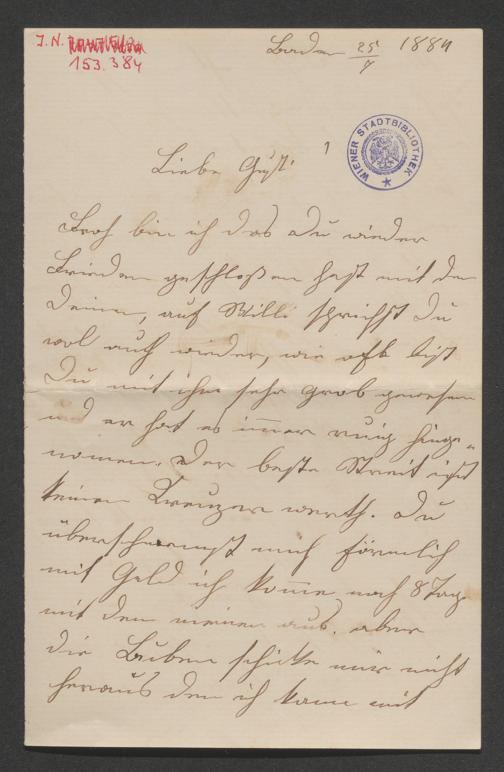 J. N.
153.384
Baden 25/7 1884
WIENER STADTBIBLIOTHEK
1
Liebe Gusti
Froh bin ich das Du wieder
Frieden geschloßen hast mit den
Deinen, auf Willi schrichst Du
wol auch wieder, wie oft bist
Du mit ihm sehr grob gewesen
und er hat es immer ruig hinge-
nomen. Der beste Streit ist
keinen Kreuzer werth. Du
überschwemst mich förmlich
mit Geld ich komme noch 8 Tag
mit dem meinen aus. aber
die Buben schicke mir nicht
heraus den ich kann mit